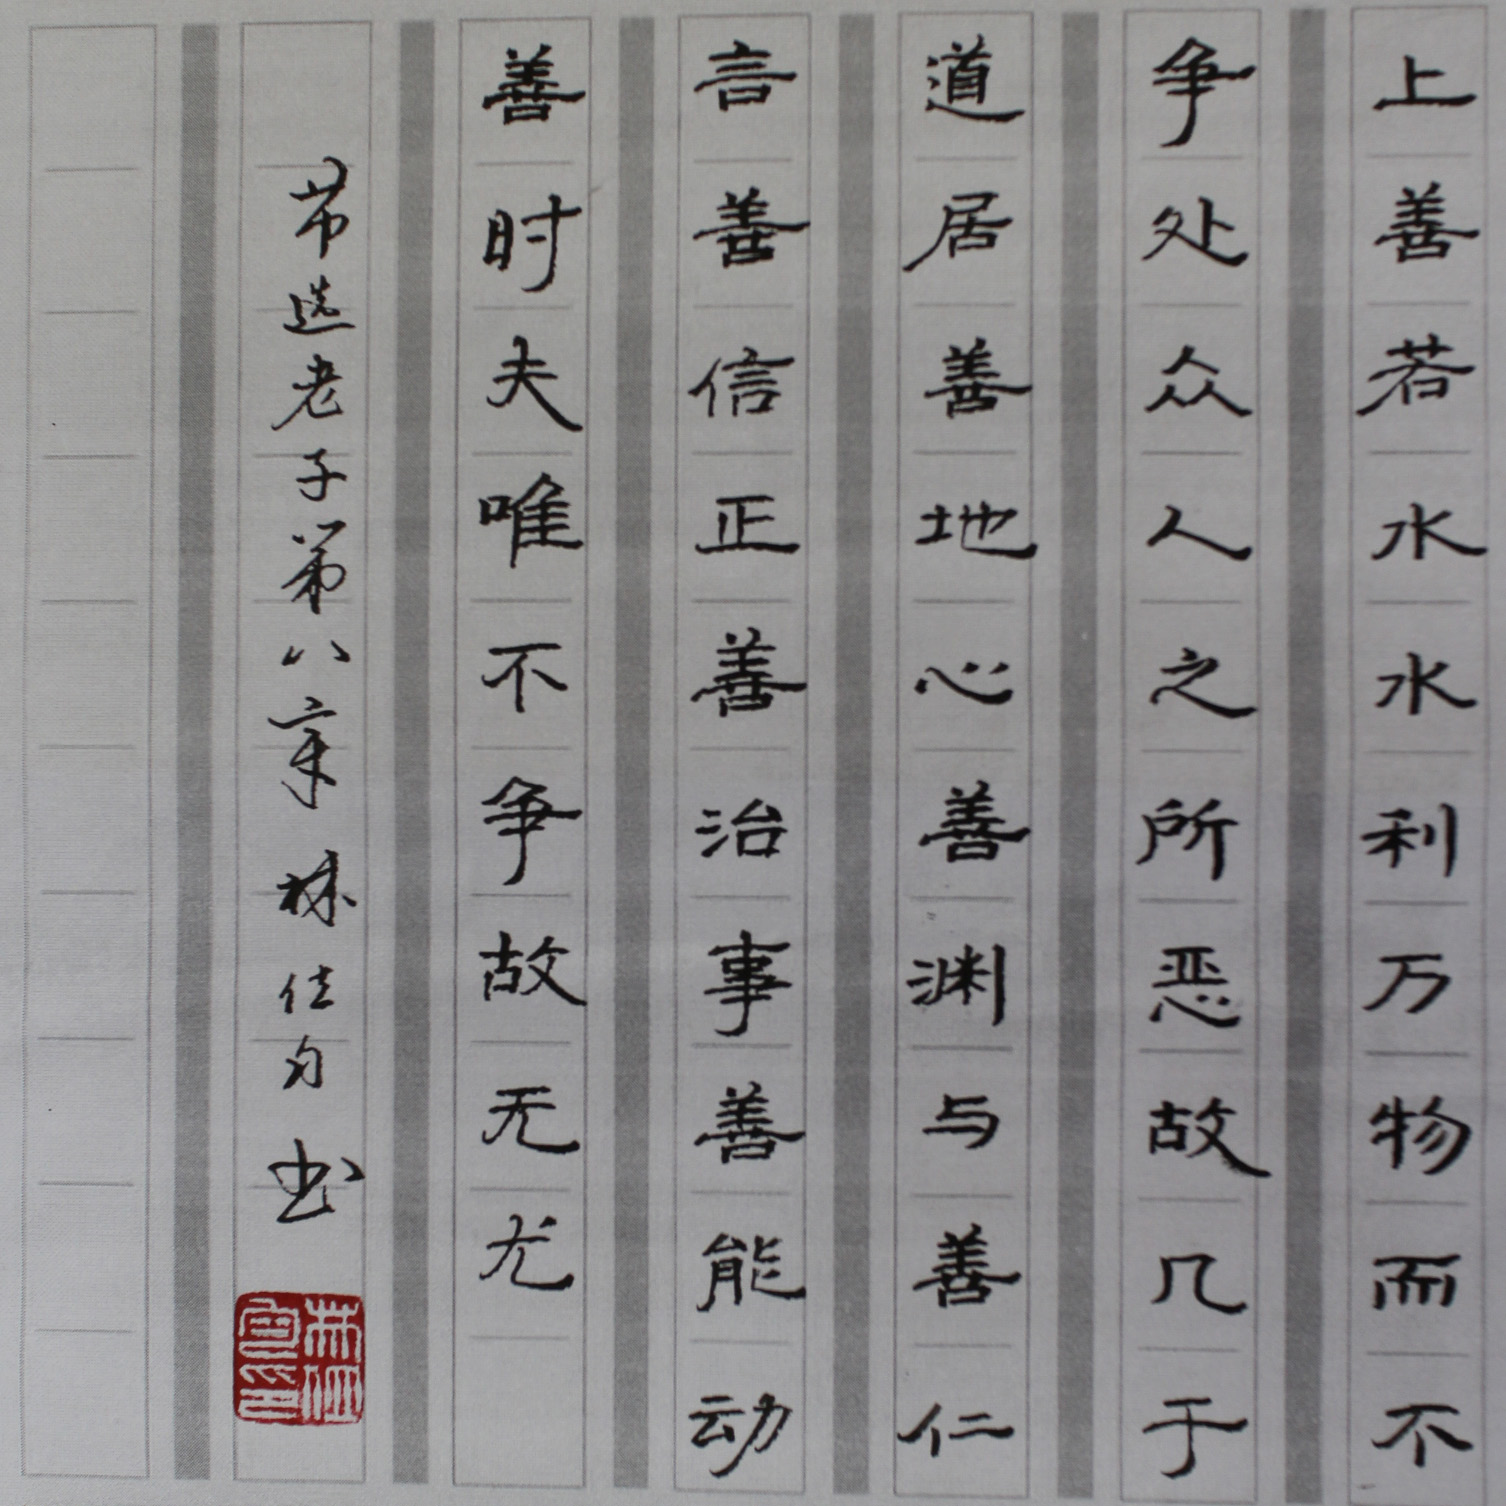 上善若水水利万物而不
争处众人之所恶故几于
道居善地心善渊与善仁
言善信正善治事善能动
善时夫唯不争故无尤
节选老子第八章 林仕勻 书